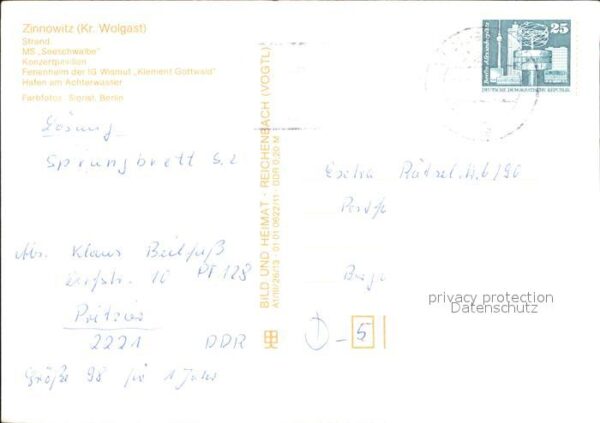 Zinnowitz (Kr. Wolgast)
Strand
MS „Seeschwalbe"
Konzertpavillon
Ferienheim der IG Wismut „Klement Gottwald"
Hafen am Achterwasser
Farbfotos: Signet, Berlin
Lösung
Sprungbrett S. 2
Abs. Klaus Beilfuß
10 PF 128
Pritzier
2221 DDR
Größe 98 für 1 Jahr
BILD UND HEIMAT · REICHENBACH (VOGTL)
A1/III/26/13 01 01 0622/11 DDR 0,20 M
Berlin, Alexanderplatz
25
DEUTSCHE DEMOKRATISCHE REPUBLIK
Extra Rätsel N. 6/90
D - 5
privacy protection
Datenschutz